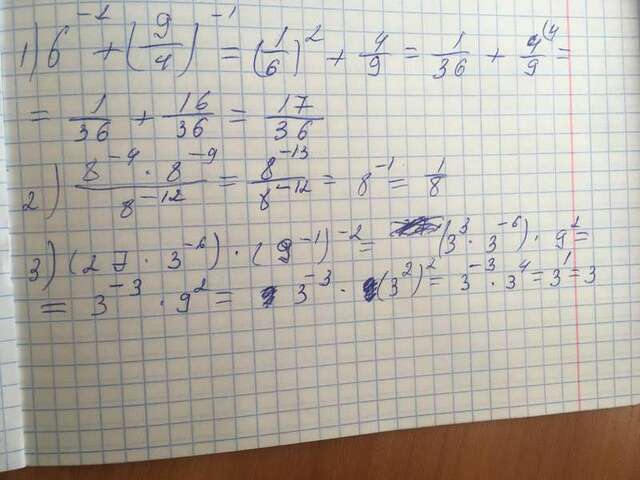 1) 6⁻² + (9/4)⁻¹ = (1/6)² + 4/9 = 1/36 + 4/9⁽⁴ =
= 1/36 + 16/36 = 17/36
2) 8⁻⁴ · 8⁻⁹ / 8⁻¹² = 8⁻¹³ / 8⁻¹² = 8⁻¹ = 1/8
3) (27 · 3⁻⁶) · (9⁻¹)⁻² = (3³ · 3⁻⁶) · 9² =
= 3⁻³ · 9² = 3⁻³ · (3²)² = 3⁻³ · 3⁴ = 3¹ = 3